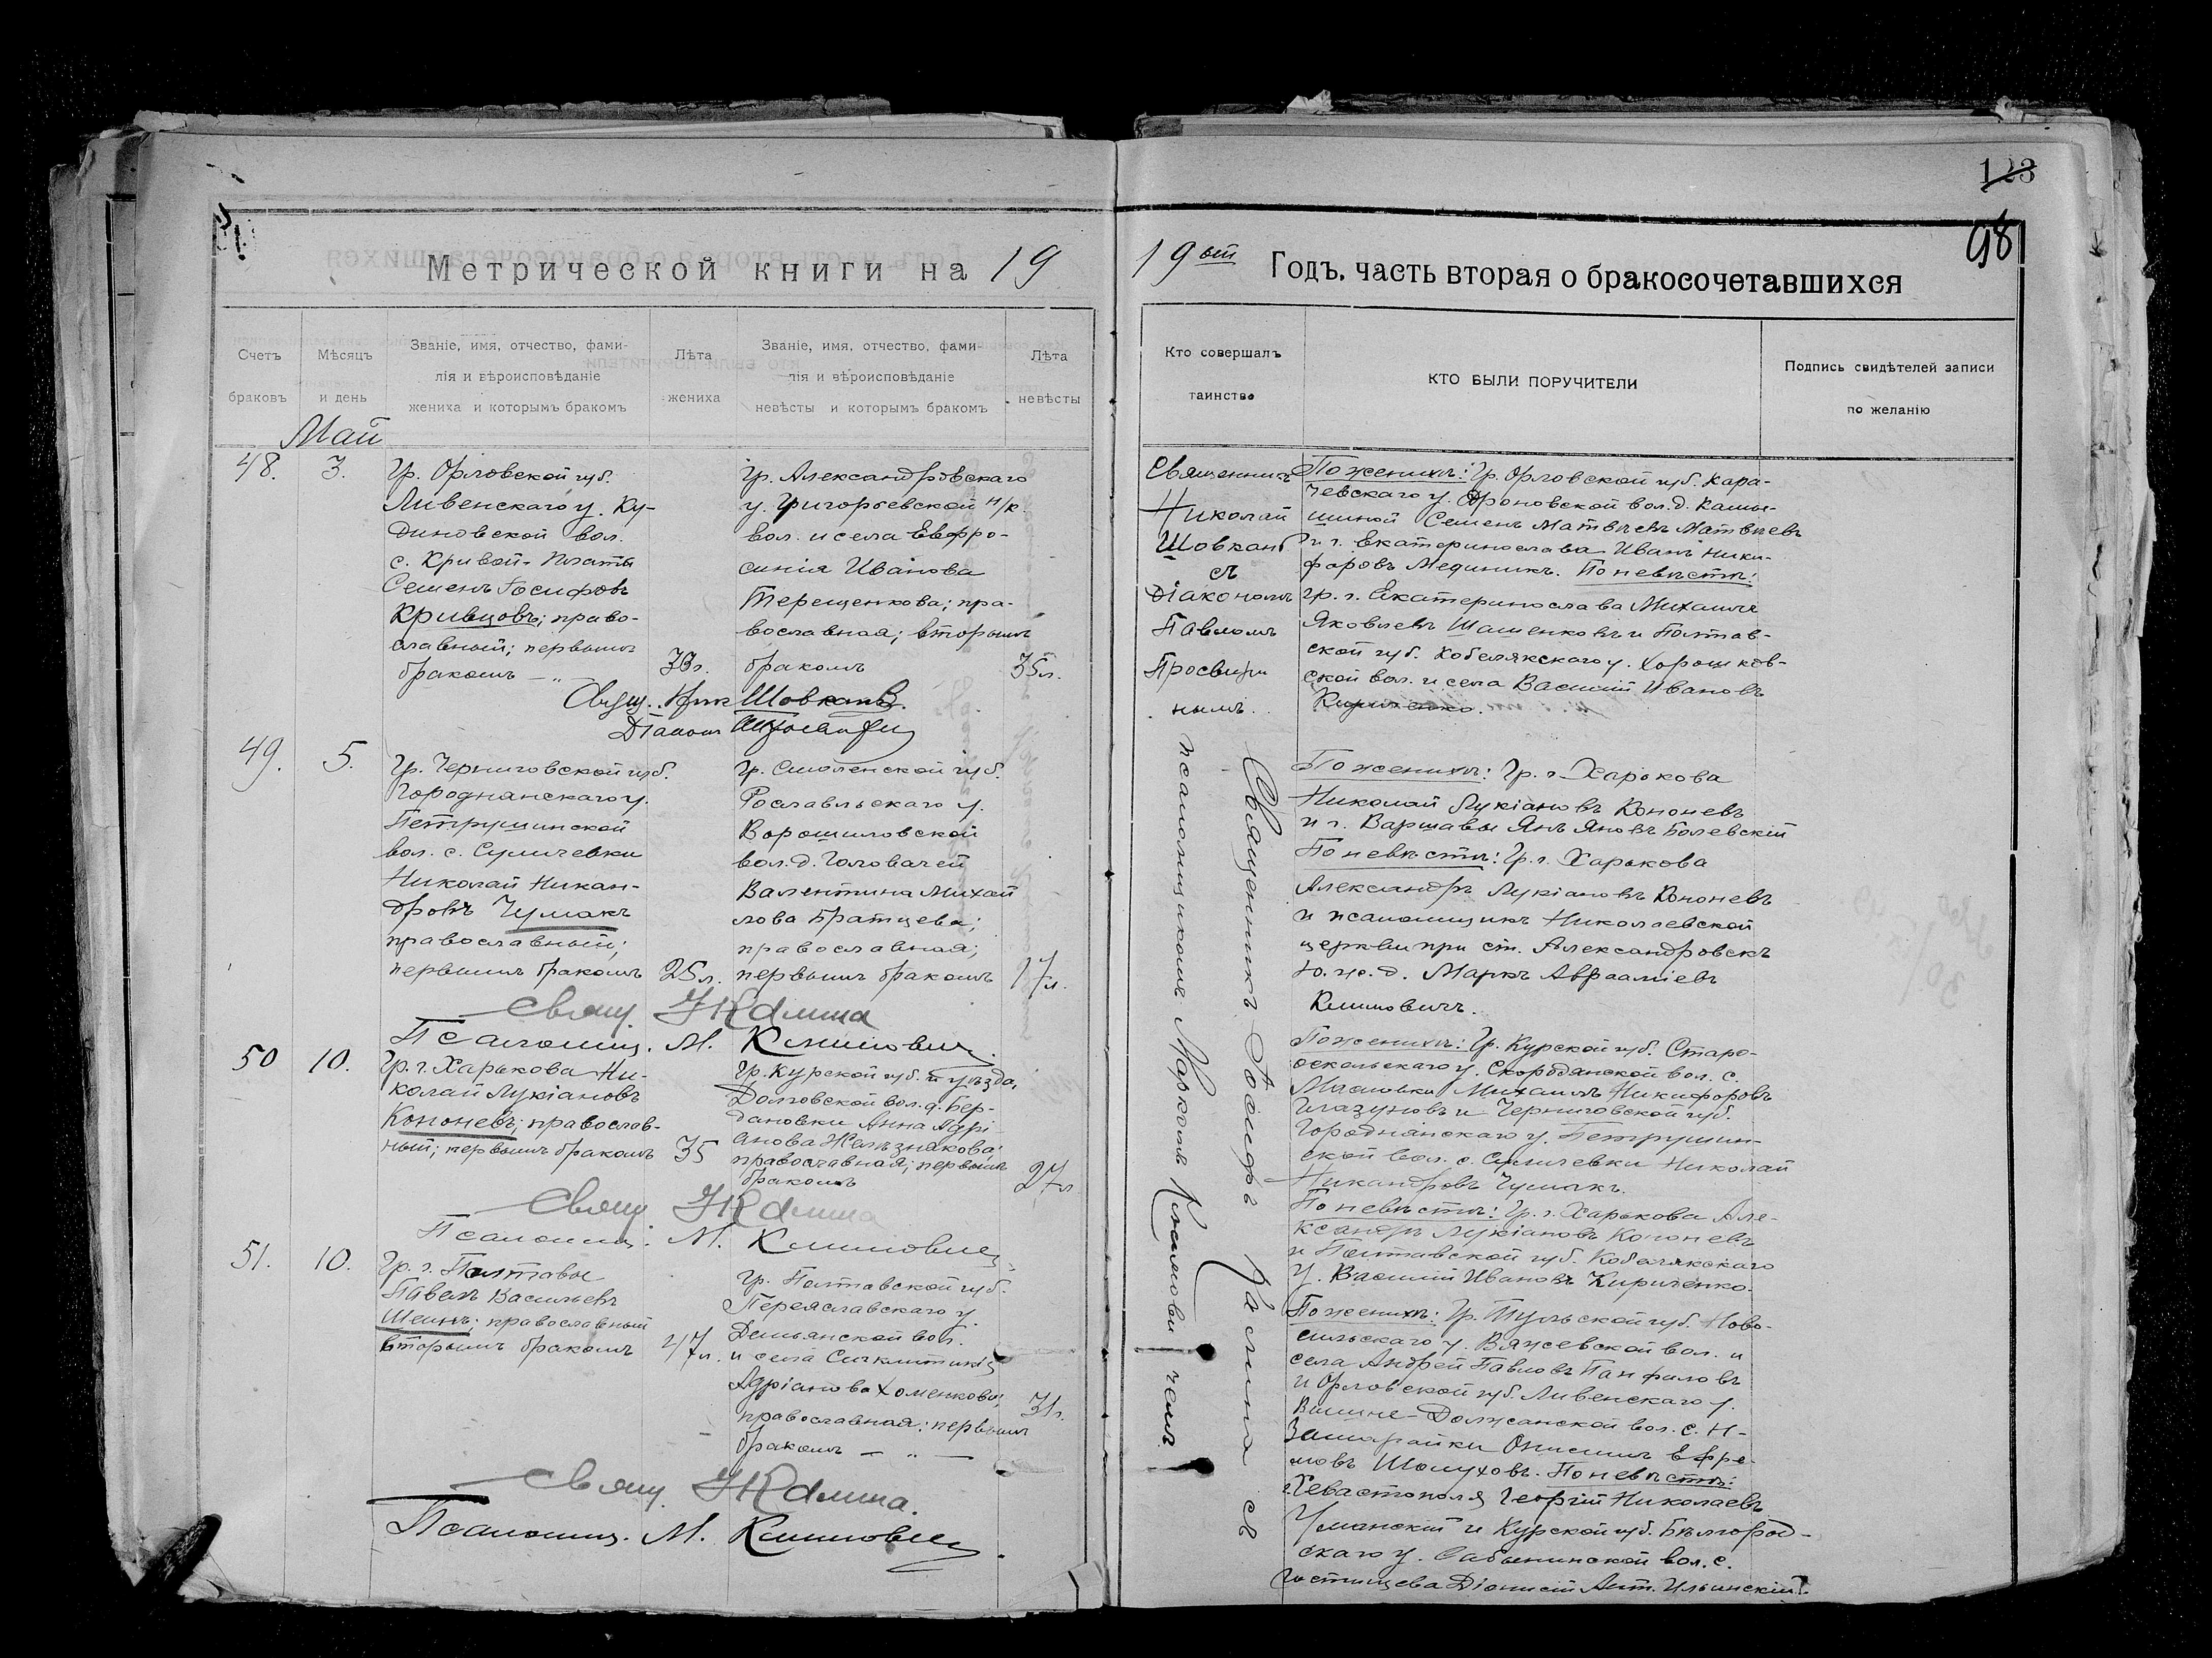 123
98
Метрической книги на 19
19ый Годъ, часть вторая о бракосочетавшихся
Счетъ браковъ
Мѣсяцъ и день
Званіе, имя, отчество, фами-
лія и вѣроисповѣданіе
жениха и которымъ бракомъ
Лѣта
жениха
Званіе, имя, отчество, фами-
лія и вѣроисповѣданіе
невѣсты и которымъ бракомъ
Лѣта
невѣсты
Кто совершалъ
таинство
КТО БЫЛИ ПОРУЧИТЕЛИ
Подпись свидѣтелей записи
по желанію
Май
48. 3.
Гр. Орловской губ.
Ливенскаго у. Ку-
диновской вол.
с. Кривой-Платы
Семенъ Іосифовъ
Кривцовъ; право-
славный; первымъ
бракомъ — „ —
Гр. Александровскаго
у. Григорьевской н/к.
вол. и села Евфро-
синія Иванова
Терещенкова; пра-
вославная; вторымъ
бракомъ
35л.
Свящ. Ник Шовкань.
Діакон
Священникъ
Николай
Шовкань
съ
Діакономъ
Павломъ
Просвири
нымъ.
По женихѣ: Гр. Орловской губ. Кара-
чевскаго у. Дроновской вол. д.
Семенъ Матвѣевъ Матвѣевъ
и г. Екатеринослава Иванъ Ники-
форовъ Мединикъ. По невѣстѣ:
гр. г. Екатеринослава Михаилъ
Яковлевъ Шашенковъ и Полтав-
ской губ. Кобелякскаго у. Хорошков-
ской вол. и села Василій Ивановъ
Кириченко.
49. 5.
Гр. Черниговской губ.
Городнянскаго у.
Петрушинской
вол. с. Сумичевки
Николай Никан-
дровъ Чумакъ
православный;
первымъ бракомъ
25л.
Гр. Смоленской губ.
Рославльскаго у.
Ворошиловской
вол. д. Головачей
Валентина Михай
лова Братцева;
православная;
первымъ бракомъ
17л.
Свящ. І Калина
Псаломщ. М. Климович
По женихѣ: Гр. г. Харькова
Николай Лукіановъ Кононевъ
и г. Варшавы Янъ Яновъ Болевскій
По невѣстѣ: Гр. г. Харькова
Александръ Лукіановъ Кононевъ
и псаломщикъ Николаевской
церкви при ст. Александровскъ
Ю. ж. д. Маркъ Авраамiевъ
Климовичъ.
Священникъ Іосифъ Калина съ
псаломщикомъ Маркомъ Климови чемъ
50 10.
Гр. г. Харькова Ни-
колай Лукіановъ
Кононевъ; православ-
ный; первымъ бракомъ
35
Гр. Курской губ. и уѣзда,
Долговской вол. д. Бер-
дановки Анна Адрі
анова Желѣзнякова;
православная; первымъ
бракомъ
27л
Свящ. І Калина
Псаломщ. М. Климович
По женихѣ: Гр. Курской губ. Старо-
оскольскаго у. Скороднянской вол. с.
Михаилъ Никифоровъ
Глазуновъ и Черниговской губ.
Городнянскаго у. Петрушин-
ской вол. с. Сумичевки Николай
Никандровъ Чумакъ.
По невѣстѣ: Гр. г. Харькова Але-
ксандръ Лукіановъ Кононевъ
и Полтавской губ. Кобелякскаго
у. Василій Ивановъ Кириченко.
51. 10.
Гр. г. Полтавы
Павелъ Васильевъ
Шеинъ; православный
вторымъ бракомъ
47л.
Гр. Полтавской губ.
Переяславскаго у.
Демьянской вол.
и села Синклитикія
Адріанова Хоменкова;
православная; первымъ
бракомъ — „ —
31г.
Свящ. І Калина.
Псаломщ. М. Климович.
По женихѣ: Гр. Тульской губ. Ново-
сильскаго у. Вяжевской вол. и
села Андрей Павловъ Панфиловъ
и Орловской губ. Ливенскаго у.
Вышне-Должанской вол. с. Н-
Онисимъ Ефре-
мовъ Шолуховъ. По невѣстѣ:
г. Севастополя Георгій Николаевъ
Уманскій и Курской губ. Бѣлгород-
скаго у. Сабынинской вол. с.
Гостищева Діонисій Ант. Ильинскій.